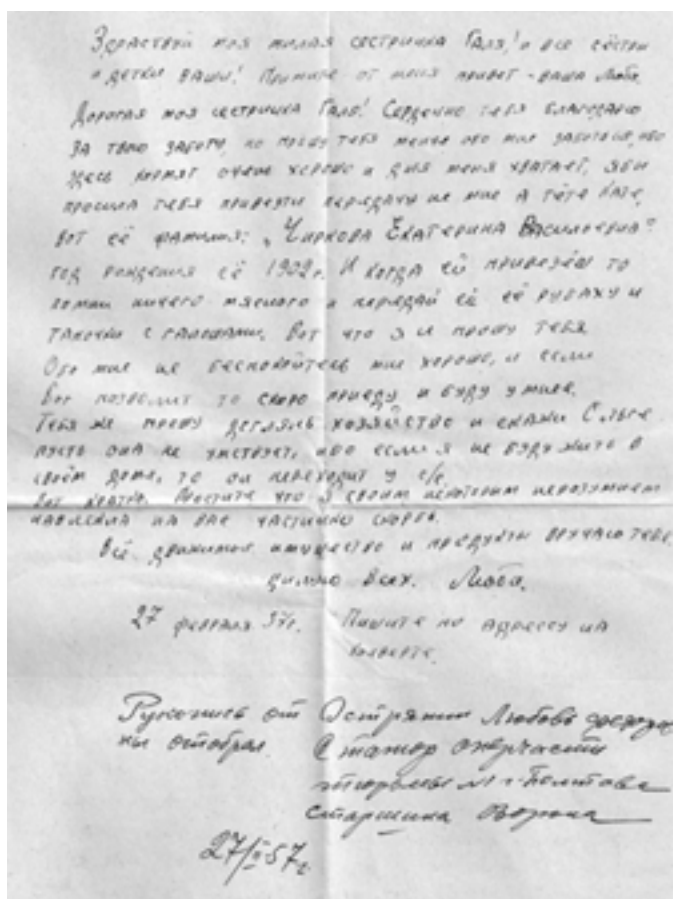 Здраствуй моя милая сестричка Галя! и все сёстры
и детки ваши! Примите от меня привет - ваша Люба.
Дорогая моя сестричка Галя! Сердечно тебя благодарю
за твою заботу, но прошу тебя менее обо мне заботься, ибо
здесь кормят очень хорошо и для меня хватает, я бы
просила тебя привезти передачу не мне а тёте Кате,
вот её фамилия: „Чиркова Екатерина Васильевна"
год рождения её 1902г. И когда ей привезёш то
помни ничего мясного и передай ей её рубаху и
тапочки с галошами. Вот что я и прошу тебя
Обо мне не беспокойтесь мне хорошо, и если
Бог позволит то скоро приеду и буду у
Тебя же прошу доглядь хозяйство и скажи Ольге
пусть она не, ибо если я не буду жить в
своём доме, то он переходит у с/с.
Вот кратко. Простите что я своим некоторым неразумием
навлекла на вас частично скорбь.
Всё движимое имущество и продукты вручаю тебе.
целую всех. Люба.
27 февраля 57г. Пишите по адрессу на
конверте.
Рукопись от Острянин Любовь
ны отобрал. Стажор оперчасти
тюрьмы №1 г. Полтава
старшина
27/II-57г.